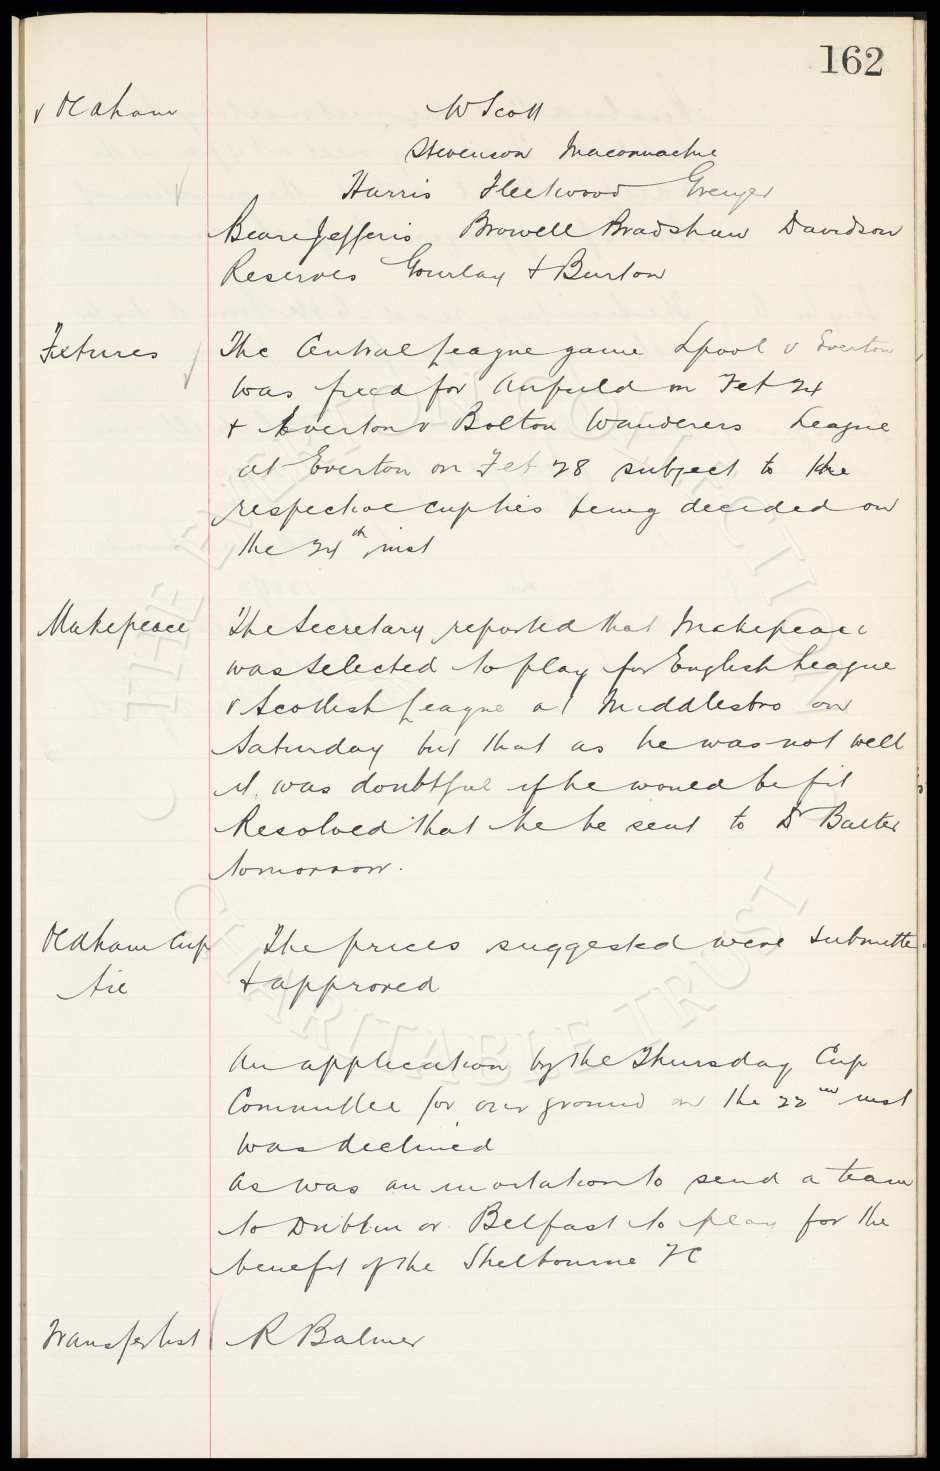 162
v Oldham
W Scott
Stevenson Maconnachie
Harris Fleetwood Grenyer
Beare Jefferis Browell Bradshaw Davidson
Reserves Gourlay + Burton
Fixtures
The Central League game Lpool v Everton
was fixed for Anfield on Feb 24
+ Everton v Bolton Wanderers League
at Everton on Feb 28 subject to the
respective cupties being decided on
the 24th inst
Makepeace
The Secretary reported that Makepeace
was selected to play for English League
v Scottish League at Middlesbro on
Saturday but that as he was not well
it was doubtful if he would be fit
Resolved that he be sent to Dr Baxter
tomorrow.
Oldham Cup
tie
The prices suggested were submitted
+ approved
An application by the Thursday Cup
Committee for our ground on the 22nd inst
was declined
As was an invitation to send a team
to Dublin or Belfast to play for the
benefit of the Shelbourne FC
Transfer list
R Balmer
THE EVERTON COLLECTION
CHARITABLE TRUST